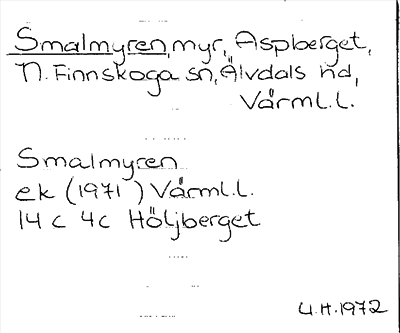 Smalmyren, myr, Aspberget,
N. Finnskoga sn, Älvdals hd,
Värml.l.
Smalmyren
ek (1971) Värml.l.
14 c 4c Höljberget
U.H. 1972